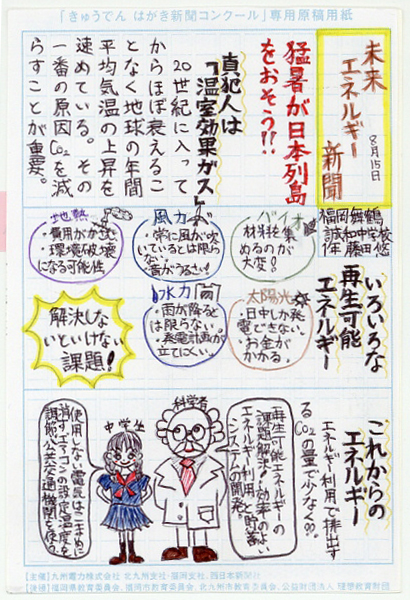 「きゅうでん はがき新聞コンクール」専用原稿用紙
未来
エネルギー
新聞
8月15日
福岡舞鶴
誠和中学校
1年 藤田 悠
猛暑が日本列島
をおそう!!
真犯人は
「温室効果ガス」
20世紀に入って
からほぼ衰えるこ
となく地球の年間
平均気温の上昇を
速めている。その
一番の原因CO₂を減
らすことが重要。
いろいろな
再生可能
エネルギー
バイオ
・材料を集
めるのが
大変!
風力
・常に風が吹
いているとは限ら
ない。
・音がうるさい!
地熱
・費用がかさむ
・環境破壊
になる可能性
太陽光
・日中しか発
電できない。
・お金が
かかる。
水力
・雨が降ると
は限らない。
・発電計画が
立てにくい。
解決しな
いといけない
課題!
これからの
エネルギー
エネルギー利用で排出す
るCO₂の量で少なく。
科学者
再生可能エネルギーの
課題解決と効率のよい
エネルギー利用と貯蓄
システムの開発。
中学生
使用しない電気はこまめに
消す、エアコンの設定温度を
調節、公共交通機関を使う。
【主催】九州電力株式会社 北九州支社・福岡支社、西日本新聞社
【後援】福岡県教育委員会、福岡市教育委員会、北九州市教育委員会、公益財団法人 理想教育財団